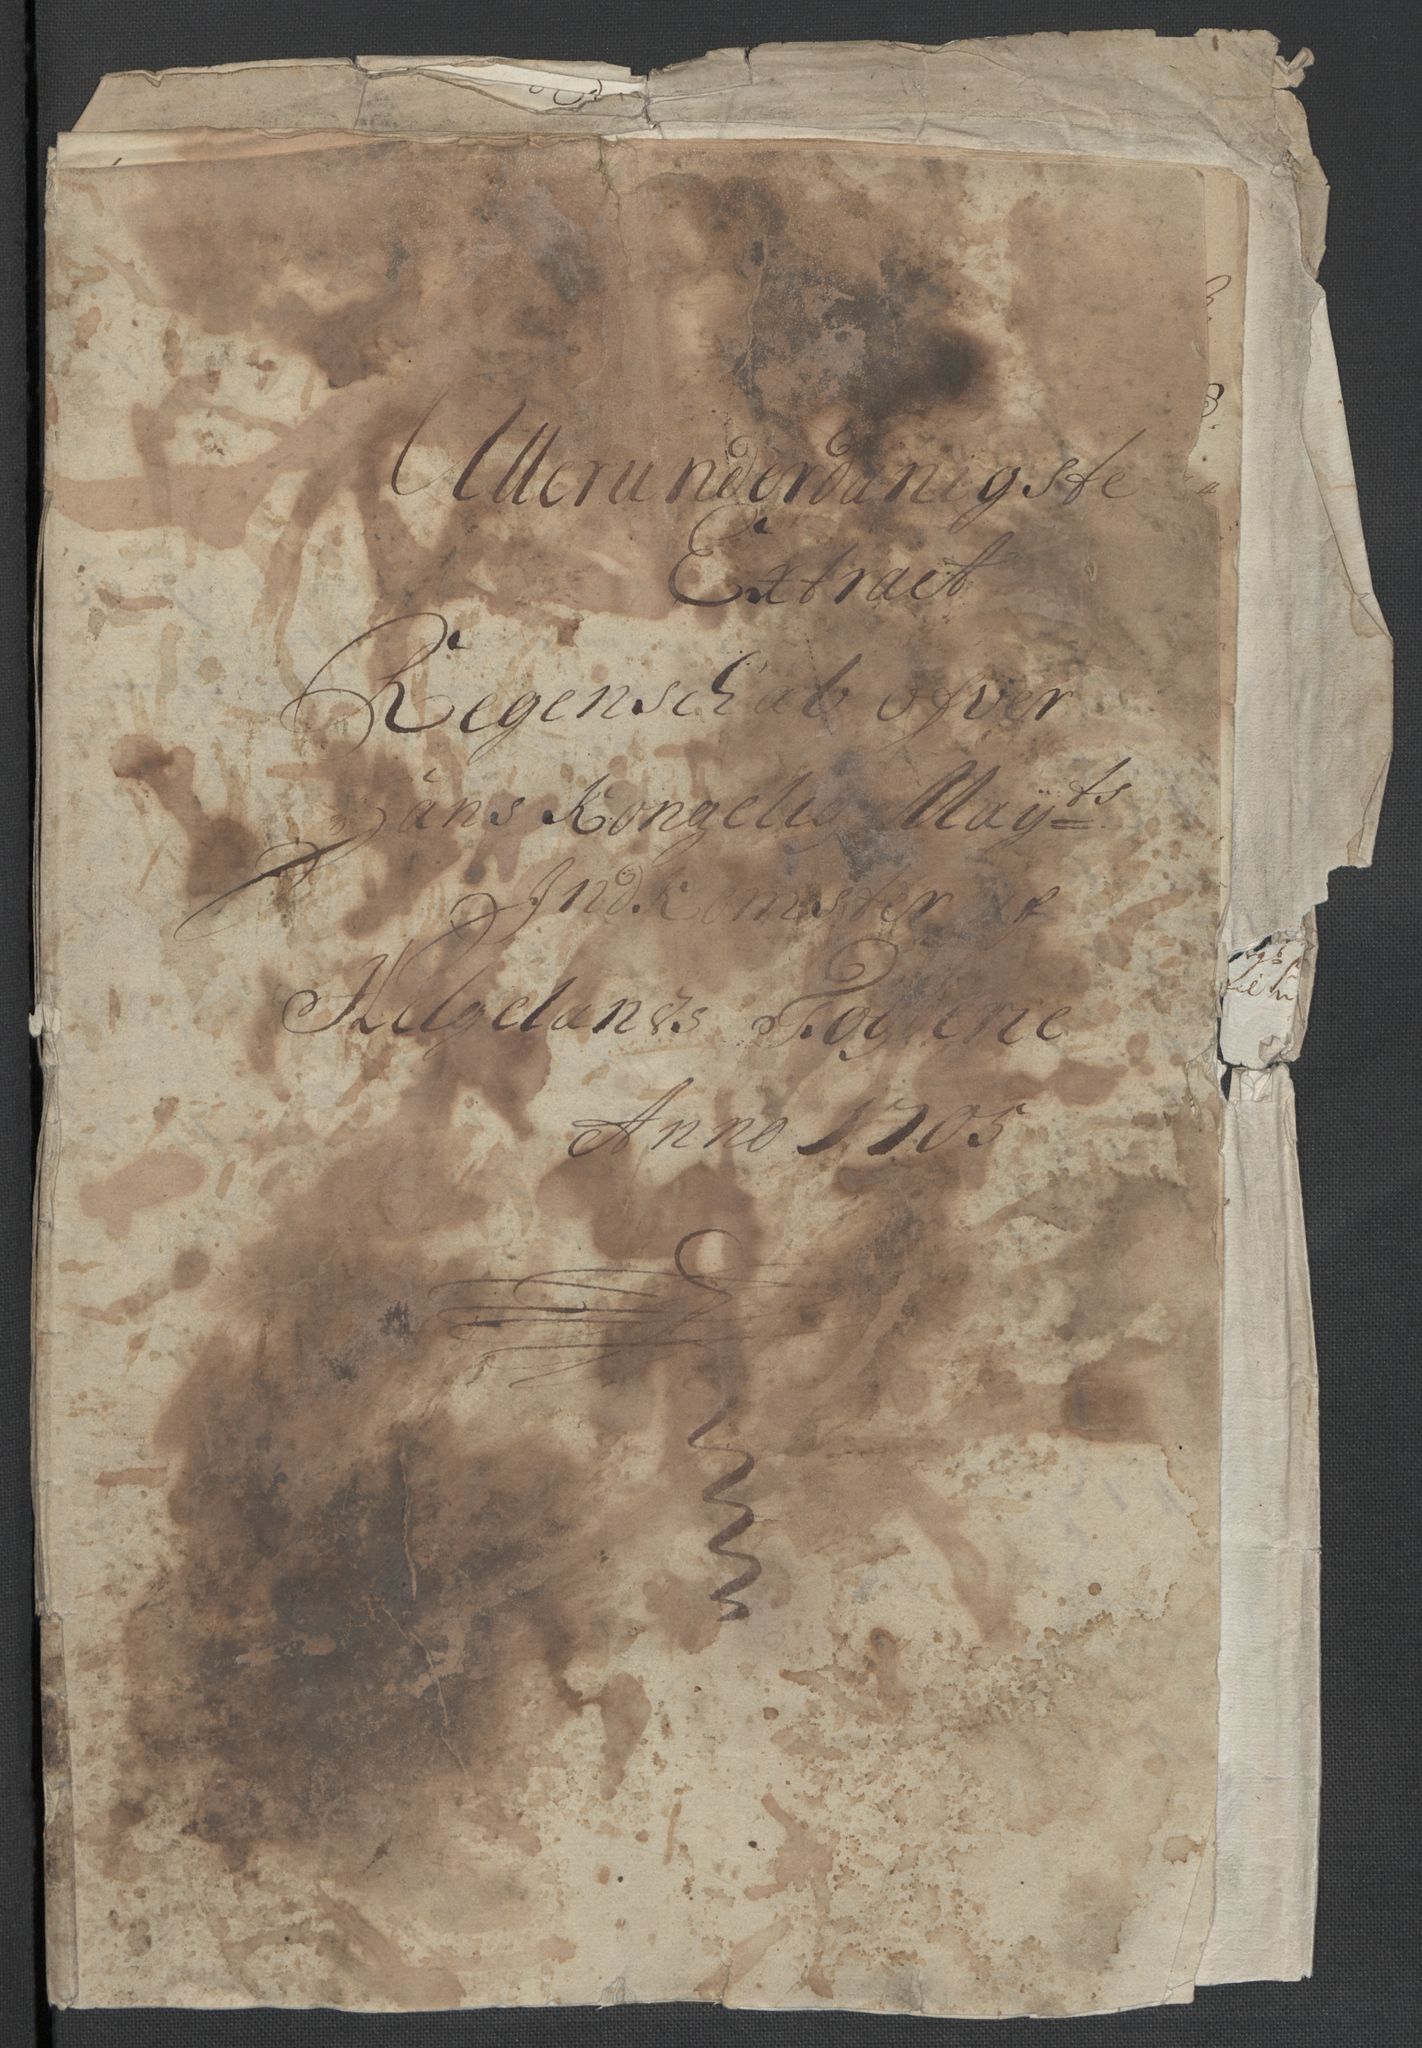 Allerunderdanigste
Extract
Regenschab ofver
Hans Kongelig Mayts
Indkomster af
Helgelands Fogterie
Anno 1705